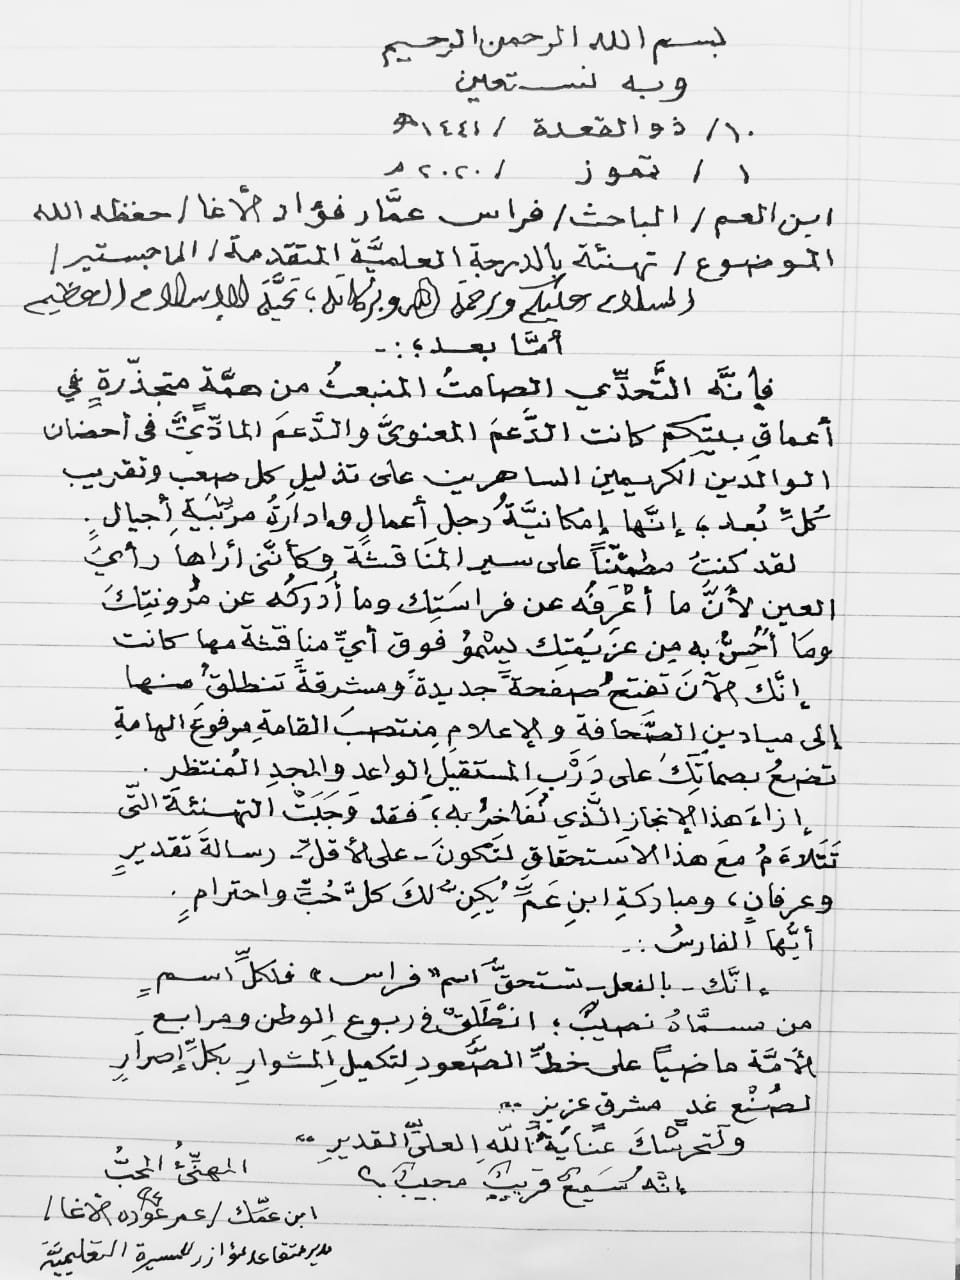 بسم الله الرحمن الرحيم
وبه نستعين
١٠/ ذو القعدة /١٤٤١هـ
١ / تموز /٢٠٢٠م
ابن العم / الباحث/ فراس عمَّار فؤاد الأغا/ حفظه الله
الموضوع/ تهنئة بالدرجة العلميَّة المتقدمة/ الماجستير/
السلام عليكم ورحمة الله وبركاته؛ تحيَّة الإسلام العظيم
أمَّا بعد؛:-
فإنَّه التَّحدِّي الصامتُ المنبعثُ من همَّةٍ متجذّرةٍ في
أعماقِ بيتِكم كانت الدَّعمَ المعنويَّ والدَّعمَ المادِّيَّ في أحضان
الوالدين الكريمين الساهرين على تذليلِ كل صعب وتقريب
كُلِّ بُعد؛ إنَّها إمكانيَّةُ رجل أعمالٍ وإدارةُ مربِّيةِ أجيالٍ.
لقد كنتُ مطمئنّاً على سير المناقشة وكأنَّني أراها رأيَ
العين لأنَّ ما أعْرِفُه عن فراستِك وما أُدركُه عن مُرونتِكَ
ومَا أُحِسُّ به مِن عزيمتِك يسْمُو فوق أيِّ مناقشة مهما كانت
إنَّك الآنَ تفتحُ صفحةً جديدةً ومشرقةً تنطلقُ منها
إلى ميادينِ الصَّحافة والإعلام مِنتصبَ القامةِ مرفوعَ الهامةِ
تضعُ بصماتِكَ على دَرْبِ المستقبلِ الواعد والمجدِ المُنتظرِ.
إزاءَ هذا الإنجاز الَّذي نُفاخرُ به؛ فقدْ وَجَبَتْ التهنئةُ التّي
تَتَلاءَمُ معَ هذا الاستحقاقِ لتكونَ - على الأقلِّ - رسالةَ تقديرٍ
وعرفانٍ، ومباركةِ ابنِ عَمٍّ يُكِنُّ لكَ كلَّ حُبٍّ واحترامٍ.
أيُّها الفارسُ :-
إنَّك - بالفعل - تستحقُّ اسم "فراس" فلكلِّ اسمٍ
من مسمَّاهُ نصيبٌ؛ انْطَلِقْ في ربوع الوطن ومرابع
الأمَّة ماضياً على خطِّ الصُّعودِ لتكميلِ المشوارِ بكلِّ إصرارٍ
لصُنْعِ غدٍ مشرقٍ عزيزٍ..
ولتحرسْكَ عنايةُ اللهِ العليِّ القديرِ..
إنَّه سَميعٌ قريبٌ مجيبٌ؛
المهنِّئُ المُحبُّ
ابن عمّك / عمر عوده الأغا/
مدير متقاعد مؤازر للمسيرة التعليميَّة